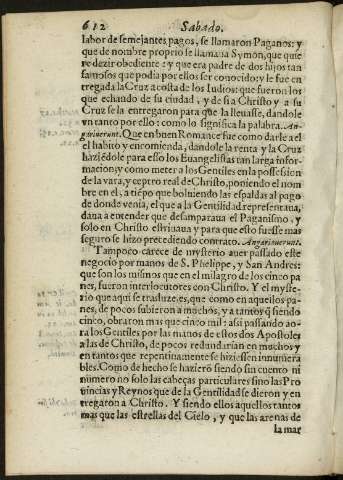 612 Sabado.
labor de semejantes pagos, se llamaron Paganos: y
que de nombre proprio se llamaua Symon, que quie
re dezir obediente: y que era padre de dos hijos tan
famosos que podia por ellos ser conocido: y le fue en
tregada la Cruz a costa de los Iudios: que fueron los
que echando de su ciudad, y de si a Christo y a su
Cruz se la entregaron para que la lleuasse, dandole
vn tanto por ello: como lo significa la palabra. An-
gariauerunt. Que en buen Romance fue como darle a el
el habito y encomienda, dandole la renta y la Cruz
haziẽdole para esso los Euangelistas tan larga infor-
macion: y como meter a los Gentiles en la possession
de la vara, y ceptro real de Christo, poniendo el nom
bre en el, a tiempo que boluiendo las espaldas al pago
de donde venia, el que a la Gentilidad representaua,
daua a entender que desamparaua el Paganismo, y
solo en Christo estriuaua y para que esto fuesse mas
seguro se hizo precediendo contrato. Angariauerunt.
Tampoco carece de mysterio auer passado este
negocio por manos de S. Phelippe, y San Andres:
que son los mismos que en el milagro de los cinco pa
nes, fueron interlocutores con Christo. Y el myste-
rio que aqui se trasluze. es, que como en aquellos pa-
nes, de pocos subieron a muchos, y a tantos q̃ siendo
cinco, obraron mas que cinco mil: assi passando ao-
ra los Gentiles por las manos de estos dos Apostoles
a las de Christo, de pocos redundarian en muchos y
en tantos que repentinamente se hiziessen innumera
bles. Como de hecho se hazierõ siendo sin cuento ni
numero no solo las cabeças particulares sino las Pro
uincias y Reynos que de la Gentilidad se dieron y en
tregaron a Christo. Y siendo ellos aquellos tantos
mas que las estrellas del Cielo, y que las arenas de
la mar